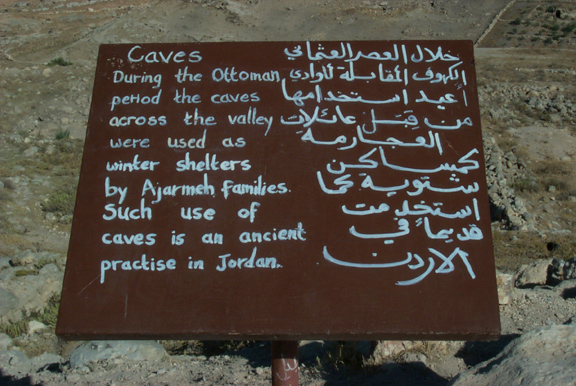 Caves
During the Ottoman
period the caves
across the valley
were used as
winter shelters
by Ajarmeh families.
Such use of
caves is an ancient
practise in Jordan.
خلال العصر العثماني
الكهوف المقابلة للوادي
أعيد استخدامها
من قِبَل عائلات
العجارمه
كمساكن
شتوية كما
استخدمت
قديماً في
الاردن